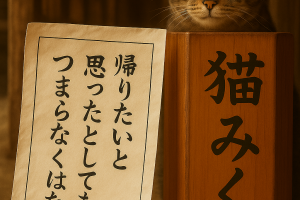 帰りたいと
思ったとしても
つまらなくはな
猫みく